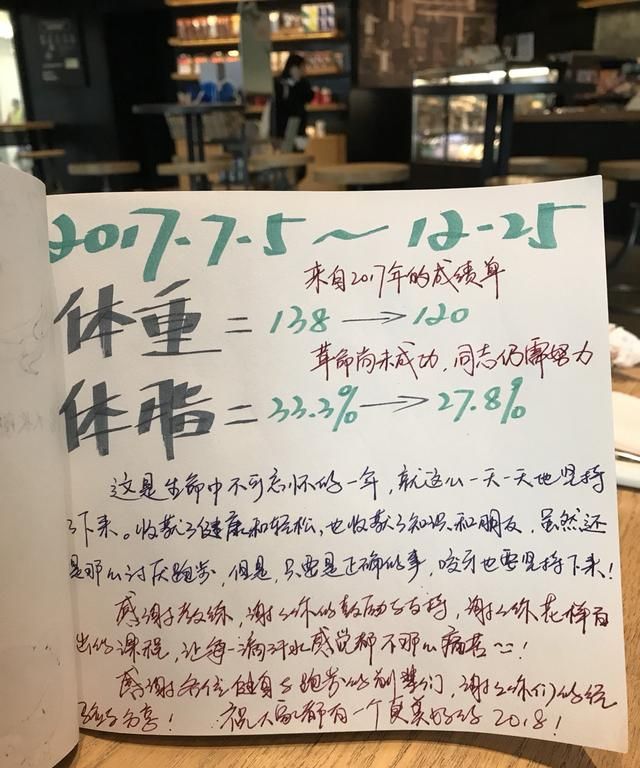 2017-7-5 ~ 12-25
来自2017年的成绩单
体重 = 138 → 120
革命尚未成功,同志仍需努力
体脂 = 33.3% → 27.8%
这是生命中不可忘怀的一年,就这么一天一天地坚持
了下来。收获了健康和轻松,也收获了知识和朋友,虽然还
是那么讨厌跑步,但是,只要是正确的事,咬牙也要坚持下来!
感谢教练,谢谢你的鼓励与支持,谢谢你花样百
出的课程,让每一滴汗水感觉都不那么痛苦~~!
感谢各位健身与跑步的前辈们,谢谢你们的经
验与分享! 祝大家都有一个更美好的2018!